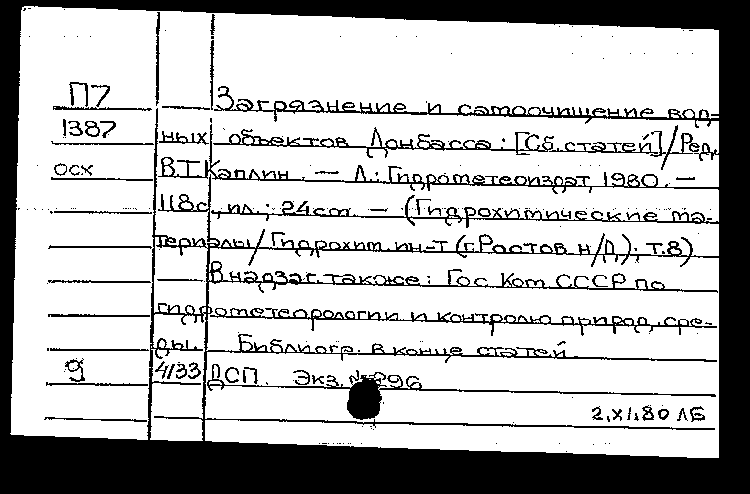 П7 Загрязнение и самоочищение вод-
1387 ных объектов Донбасса: [Сб. статей]/Ред.
осх В.Т.Каплин. — Л.: Гидрометеоиздат, 1980. —
118с., ил.; 24см. — (Гидрохимические ма-
териалы/Гидрохим. ин-т (г.Ростов н/Д); т.8)
В надзаг. также: Гос. Ком. СССР по
гидрометеорологии и контролю природ. сре-
ды. Библиогр. в конце статей.
9 4/33 ДСП. Экз. № 296
2.XI.80 ЛБ